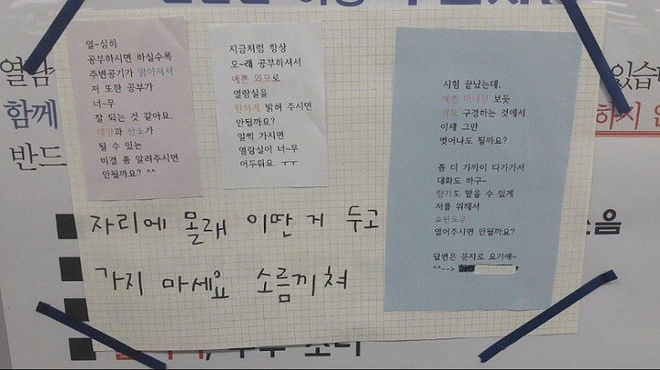 열~심히
공부하시면 하실수록
주변공기가 맑아져서
저 또한 공부가
너~무
잘 되는 것 같아요.
태양과 산소가
될 수 있는
비결 좀 알려주시면
안될까요? ^^
지금처럼 항상
오~래 공부하셔서
예쁜 외모로
열람실을
환하게 밝혀 주시면
안될까요?
일찍 가시면
열람실이 너~무
어두워요. ㅜㅜ
시험 끝났는데,
예쁜 마네킹 보듯
외모 구경하는 것에서
이제 그만
벗어나도 될까요?
좀 더 가까이 다가가서
대화도 하구~
향기도 맡을 수 있게
저를 위해서
쇼윈도우
열어주시면 안될까요?
답변은 문자로 요기에~
^^-->
자리에 몰래 이딴 거 두고
가지 마세요 소름끼쳐
열람
함께
반드
있습
하지